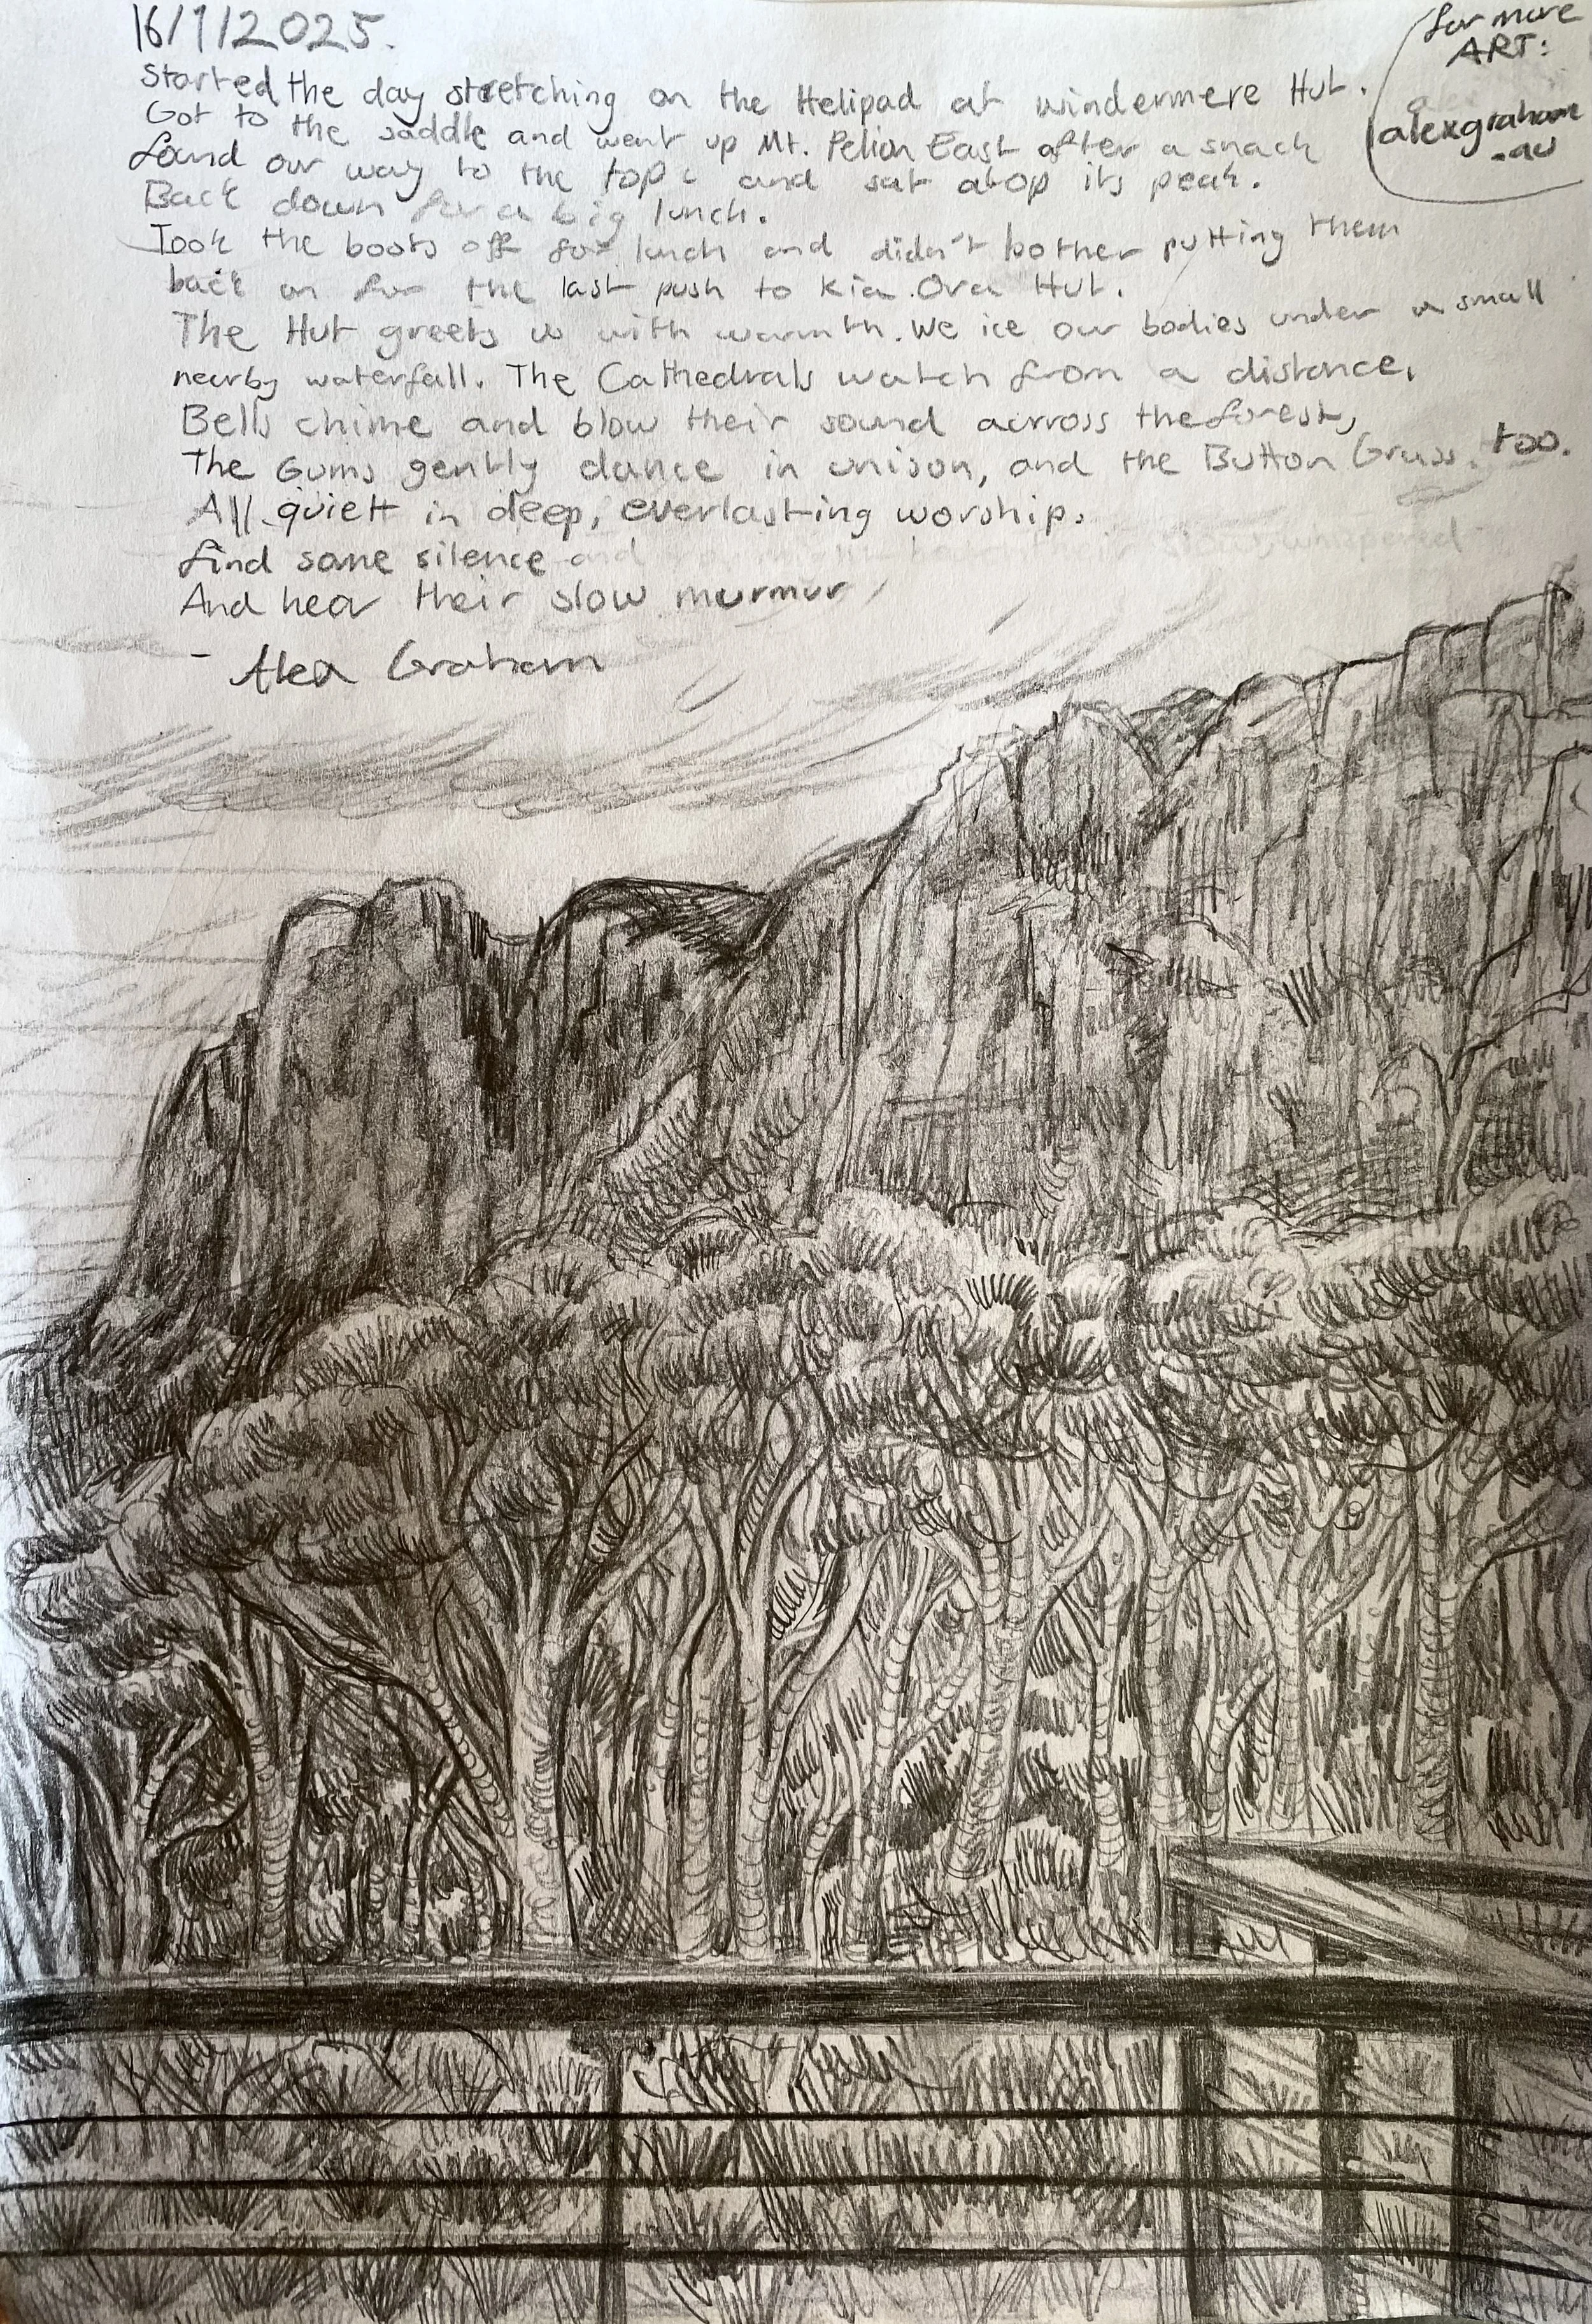 16/1/2025.
for more
ART:
alexgraham
-au
Started the day stretching on the Helipad at windermere Hut.
Got to the saddle and went up Mt. Pelion East after a snack
found our way to the top and sat atop its peak.
Back down for a big lunch.
Took the boots off for lunch and didn't bother putting them
back on for the last push to Kia Ora Hut.
The Hut greets us with warmth. We ice our bodies under a small
nearby waterfall. The Cathedrals watch from a distance,
Bells chime and blow their sound across the forest,
The Gums gently dance in unison, and the Button Grass, too.
All quiet in deep, everlasting worship.
find some silence and
And hear their slow murmur
- Alex Graham